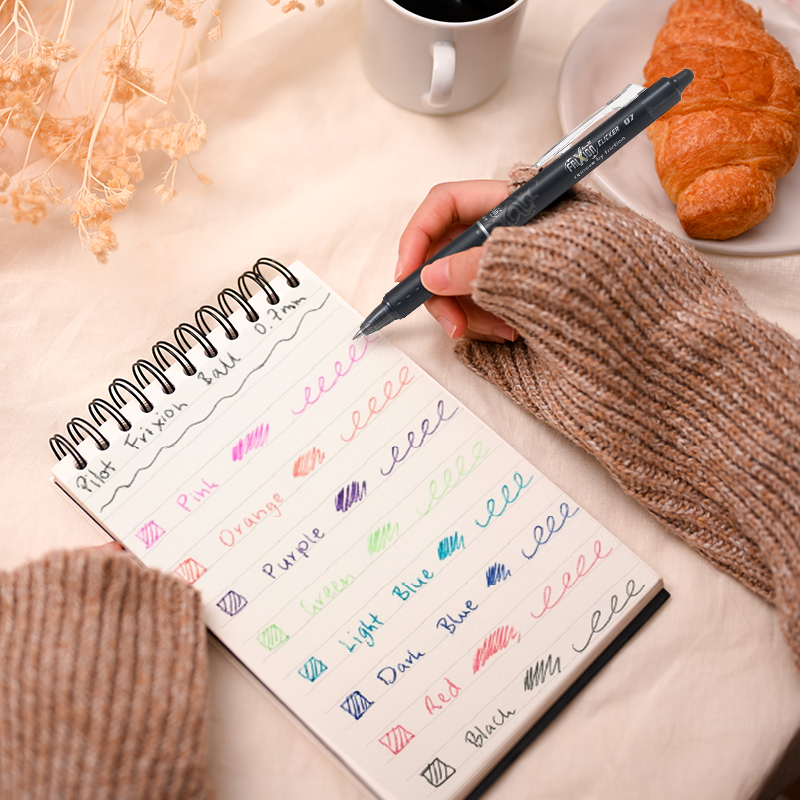 Pilot Frixion Ball 0.7mm
Pink
Orange
Purple
Green
Light Blue
Dark Blue
Red
Black
FriXion CLICKER 0.7
remove by friction